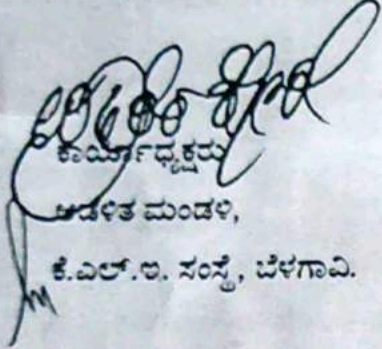 ಕಾರ್ಯಾಧ್ಯಕ್ಷರು
ಆಡಳಿತ ಮಂಡಳಿ,
ಕೆ.ಎಲ್.ಇ. ಸಂಸ್ಥೆ, ಬೆಳಗಾವಿ.